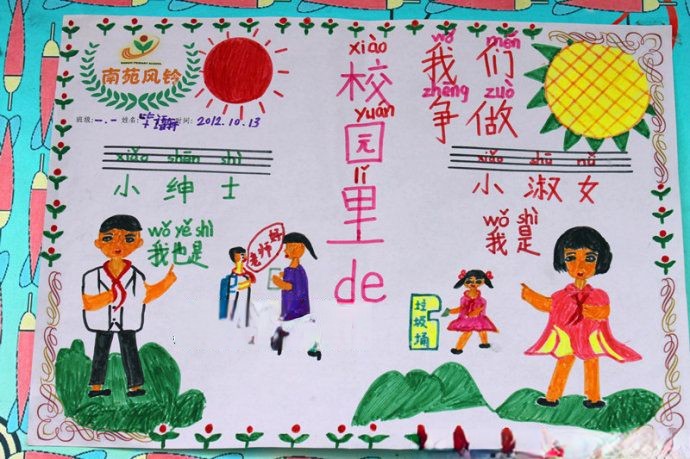 NANYUAN PRIMARY SCHOOL
南苑风铃
班级:一.一 姓名: 时间: 2012.10.13
xiào
校
yuán
园
lǐ
里
de
wǒ men
我们
zhēng zuò
争做
xiǎo shēn shì
小绅士
xiǎo shū nǚ
小淑女
wǒ yě shì
我也是
老师好
wǒ shì
我是
垃圾桶